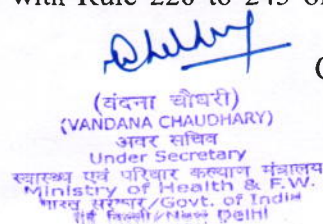 with Rule 220 to 245 of
(वंदना चौधरी)
(VANDANA CHAUDHARY)
अवर सचिव
Under Secretary
स्वास्थ्य एवं परिवार कल्याण मंत्रालय
Ministry of Health & F.W.
भारत सरकार/Govt. of India
नई दिल्ली/New Delhi